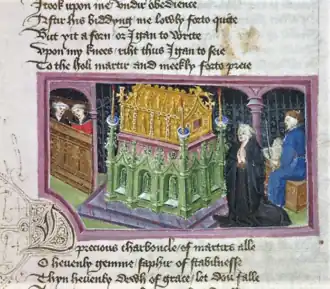 I took vpon me vndir obedience
Aftir his biddyng me lowly forto quite
But yit a forn or I gan to write
Vpon my knees riht thus I gan to seie
To the holi martir and meekly forto preie
precious charboncle / of martirs alle
O hevenly gemme / saphir of stabilnesse
Thyn hevenly dewh of grace / let doun falle